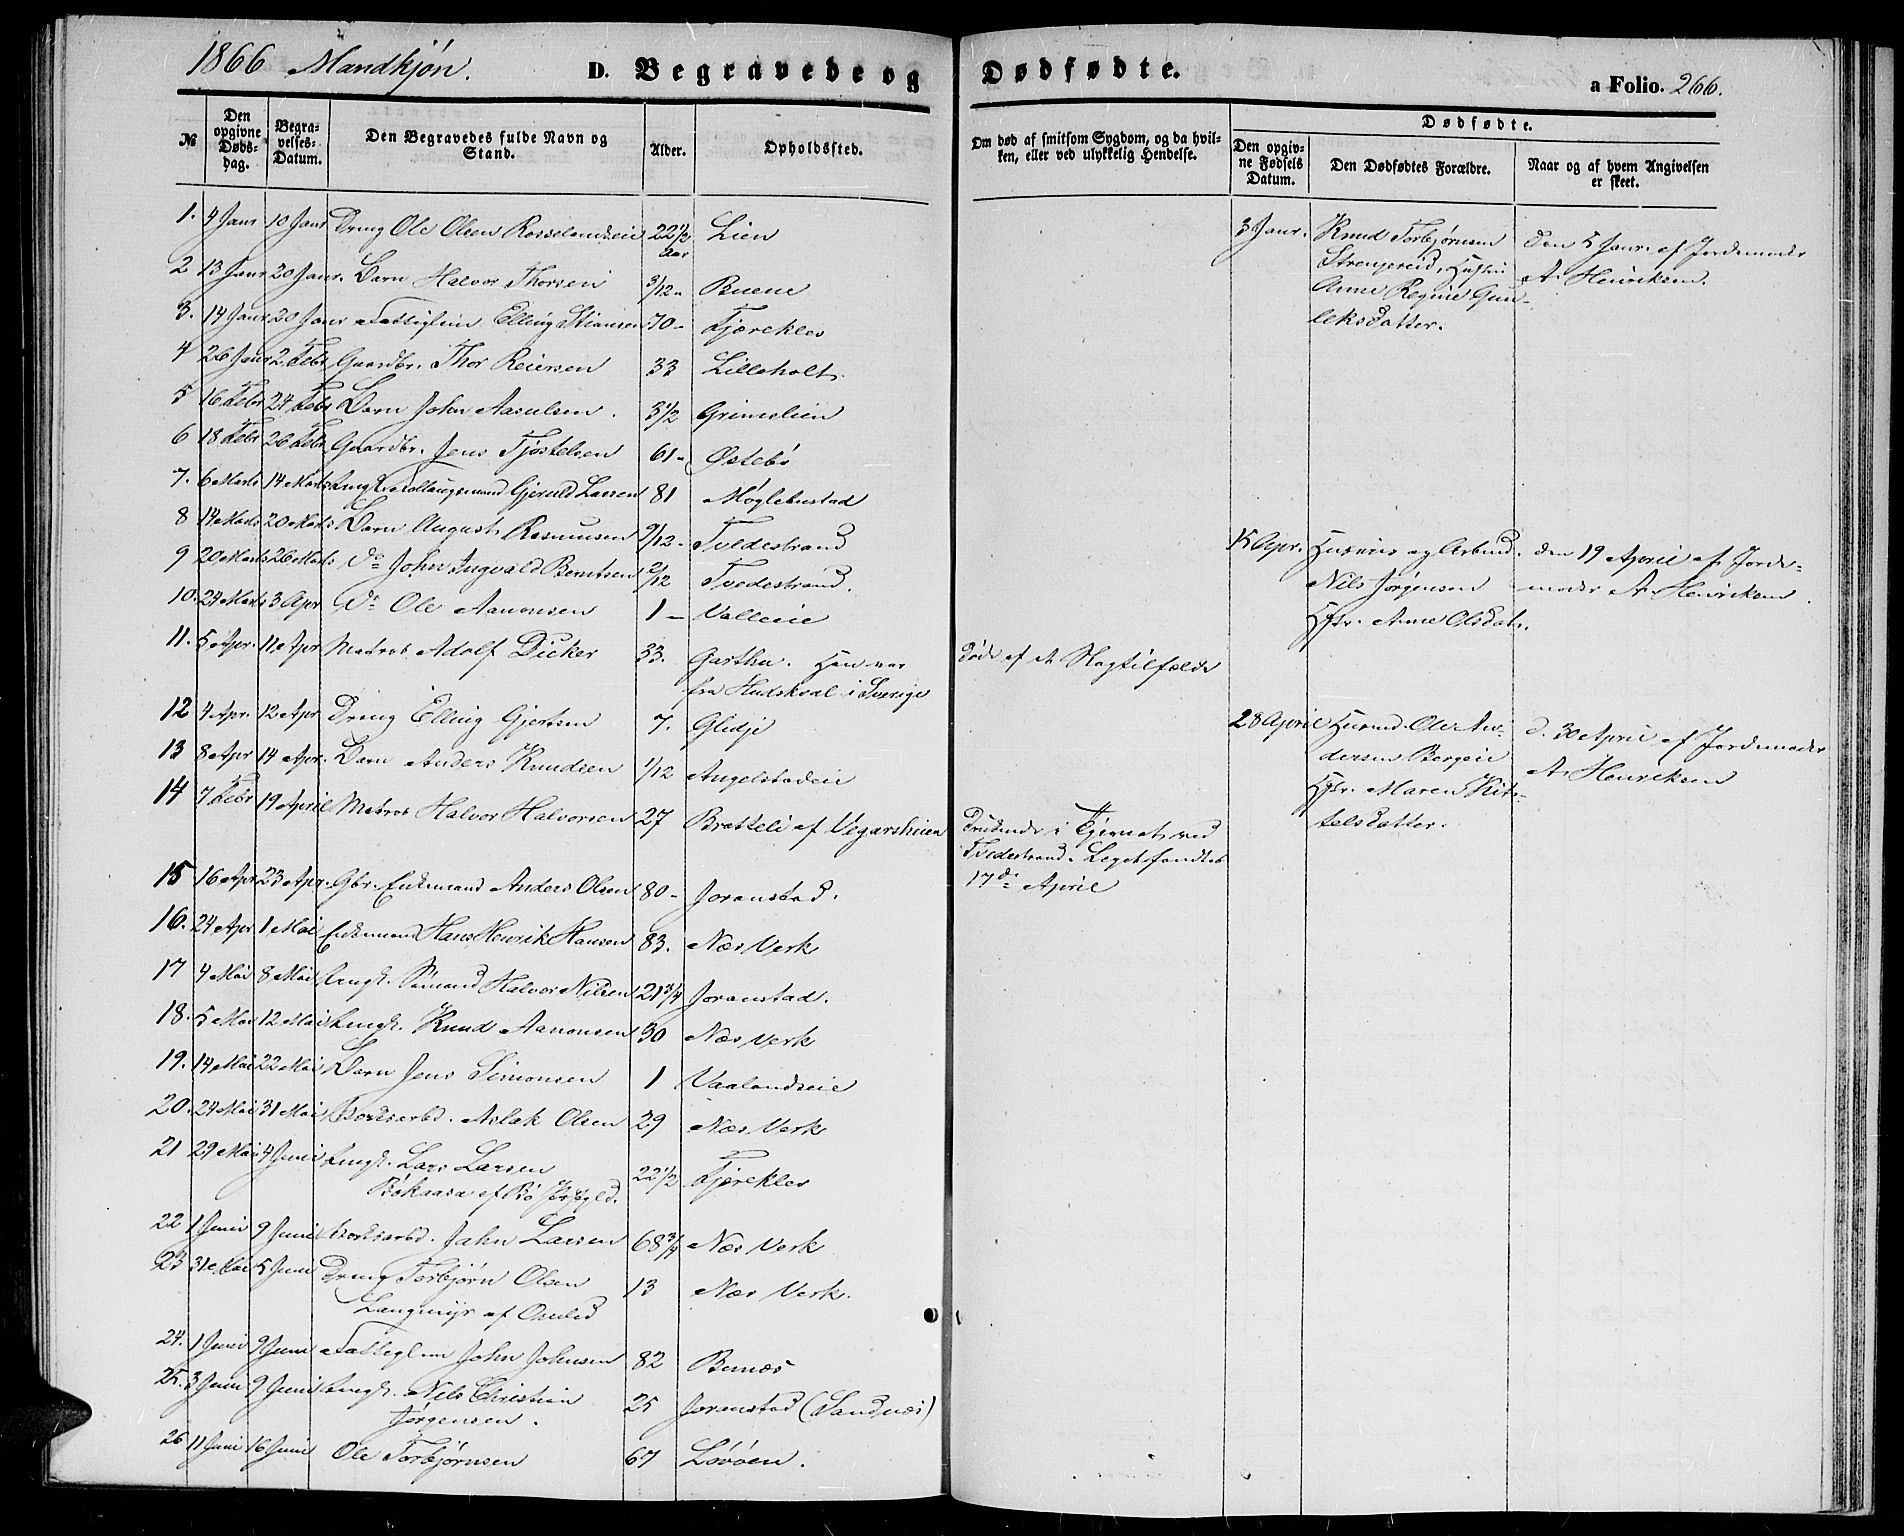 1866 Mandkjøn. D. Begravede og Dødfødte. a Folio. 266.
№ Den opgivne Døds-dag. Begra-velses-Datum. Den Begravedes fulde Navn og Stand. Alder. Opholdssted. Om død af smitsom Sygdom, og da hvil-ken, eller ved ulykkelig Hendelse. Dødfødte. Den opgiv-ne Fødsels Datum. Den Dødfødtes Forældre. Naar og af hvem Angivelsen er skeet.
1. 4 Janr 10 Janr Dreng Ole Olsen Rosselandseie 22 1/2 Aar Lien
3 Janr. Knud Torbjørnsen Strengereid, Hustru Anne Regine Gun-leksdatter. Den 5 Janr. af Jordemoder A. Henriksen.
2 13 Janr 20 Janr. Barn Halvor Thorsen 3/12 - Buene
3. 14 Janr 20 Janr Fattiglem Elling Stiansen 70 - Fjærekles
4 26 Janr 2 Febr Gaardbr. Thor Reiersen 33 Lilleholt
5 16 Febr 24 Febr Barn John Aasulsen. 3 1/2 Grimelien
6 18 Febr 26 Febr Gaardbr. Jens Tjøstelsen 61 - Østebø
7. 6 Marts 14 Marts Gjeruld Larsen 81 Møglebustad
8 14 Marts 20 Marts Barn August Rasmussen 9/12 - Tvedestrand
9 20 Marts 26 Marts do John Ingvald Berntsen 2/12 Tvedestrand.
15 Apr. Husmd og Arbmd. Nils Jørgensen Hstr. Anne Olsdatr. den 19 April af Jorde-moder A. Henriksen.
10. 24 Marts 3 Apr do Ole Aanonsen 1 - Valleeie
11. 5 Apr. 11 Apr Matros Adolf Dicker 33. Garthu. Han var fra Hudskval i Sverige Døde af et Slagtilfælde
12 4 Apr. 12 Apr Dreng Elling Gjertsen 7. Glidje
28 April Husmd. Ole An-dersen Bergeie Hstr. Maren Kit-telsdatter. d. 30 April af Jordemoder A. Henriksen
13 8 Apr 14 Apr. Barn Anders Knudsen 1/12 Angelstadeie
14 7 Febr 19 April Matros Halvor Halvorsen 27 Bratteli af Vegarsheien Druknede i Tjernet ved Tvedestrand. Liget fandtes 17de April
15 16 Apr 23 Apr. Gbr. Enkemand Anders Olsen 80 - Joranstad.
16. 24 Apr 1 Mai Enkemand Hans Henrik Hansen 83. Næs Verk
17 4 Mai 8 Mai Ungk. Sømand Halvor Nilsen 21 3/4 Joranstad.
18. 5 Mai 12 Mai Ungk. Knud Aanonsen 30 Næs Verk
19. 14 Mai 22 Mai Barn Jens Simonsen 1 Vaalandseie
20. 24 Mai 31 Mai Værksarbd. Aslak Olsen 29 Næs Verk
21 29 Mai 4 Juni Ungk. Lars Larsen Bøkaasa af Bø Præstgld. 22 1/2 Fjærekles
22 1 Juni 9 Juni Værksarbd. Jahn Larsen 68 3/4 Næs Verk
23 31 Mai 5 Juni Dreng Torbjørn Olsen Langmyr af Omlid 13 Næs Verk.
24. 1 Juni 9 Juni Fattiglem John Johnsen 82 Bunæs
25. 3 Juni 9 Juni Ungk. Nils Christian Jørgensen. 25 Joranstad (Sandnæs)
26 11 Juni 16 Juni Ole Torbjørnsen 67 Løvøen.